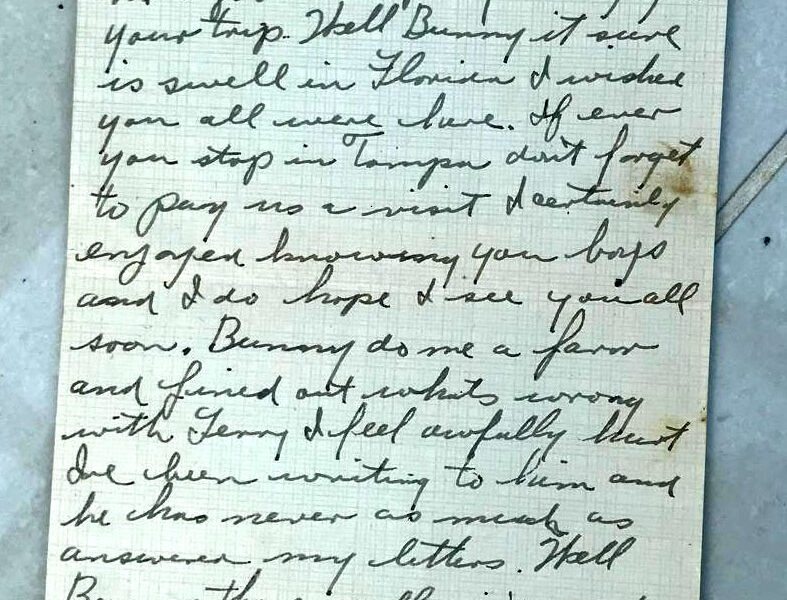 your trip. Well Bunny it sure
is swell in Florida I wished
you all were here. If ever
you stop in Tampa don't forget
to pay us a visit I certainly
enjoyed knowing you boys
and I do hope I see you all
soon. Bunny do me a favor
and fined out whats wrong
with Jerry I feel awfully hurt
Ive been writing to him and
he has never as much as
answered my letters. Well